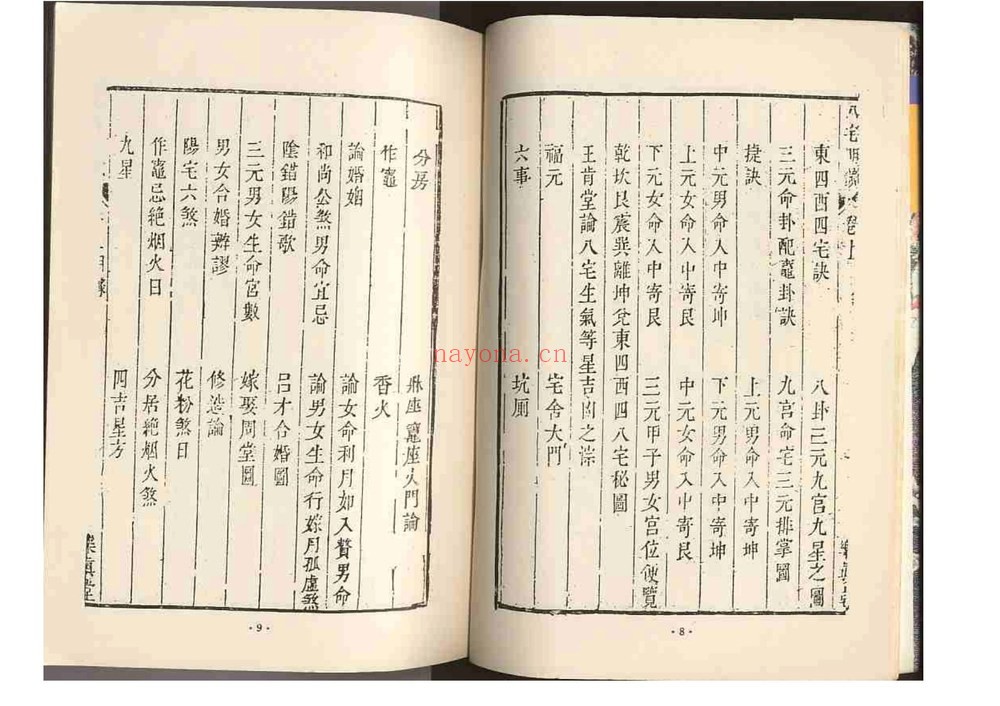 八宅明鏡卷上
東四西四宅訣
八卦三元九宮九星之圖
三元命卦配竈卦訣
九宮命宅三元排掌圖
捷訣
上元男命入中寄坤
中元男命入中寄坤
下元男命入中寄坤
上元女命入中寄艮
中元女命入中寄艮
下元女命入中寄艮
三元甲子男女宮位便覽
乾坎艮震巽離坤兌東四西四八宅秘圖
王肯堂論八宅生氣等星吉凶之深
福元
宅舍大門
六事
坑厠
樂真堂
·8·
分房
牀座竈座火門論
作竈
香火
論婚姻
論女命利月如入贅男命
和尚公煞男命宜忌
論男女生命行嫁月孤虛煞
陰錯陽錯歌
呂才合婚圖
三元男女生命宮數
嫁娶周堂圖
男女合婚辨謬
修造論
陽宅六煞
花粉煞日
作竈忌絶烟火日
分居絶烟火煞
九星
四吉星方
目錄
樂真堂
·9·
nayona.cn